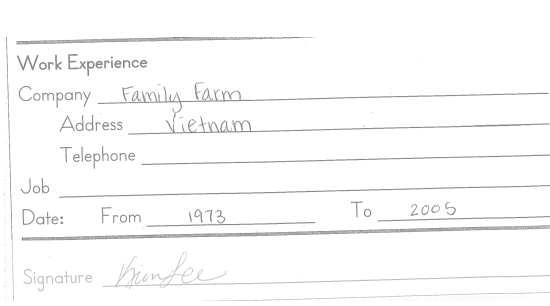 Work Experience
Company Family Farm
Address Vietnam
Telephone
Job
Date: From 1973 To 2005
Signature KimLee